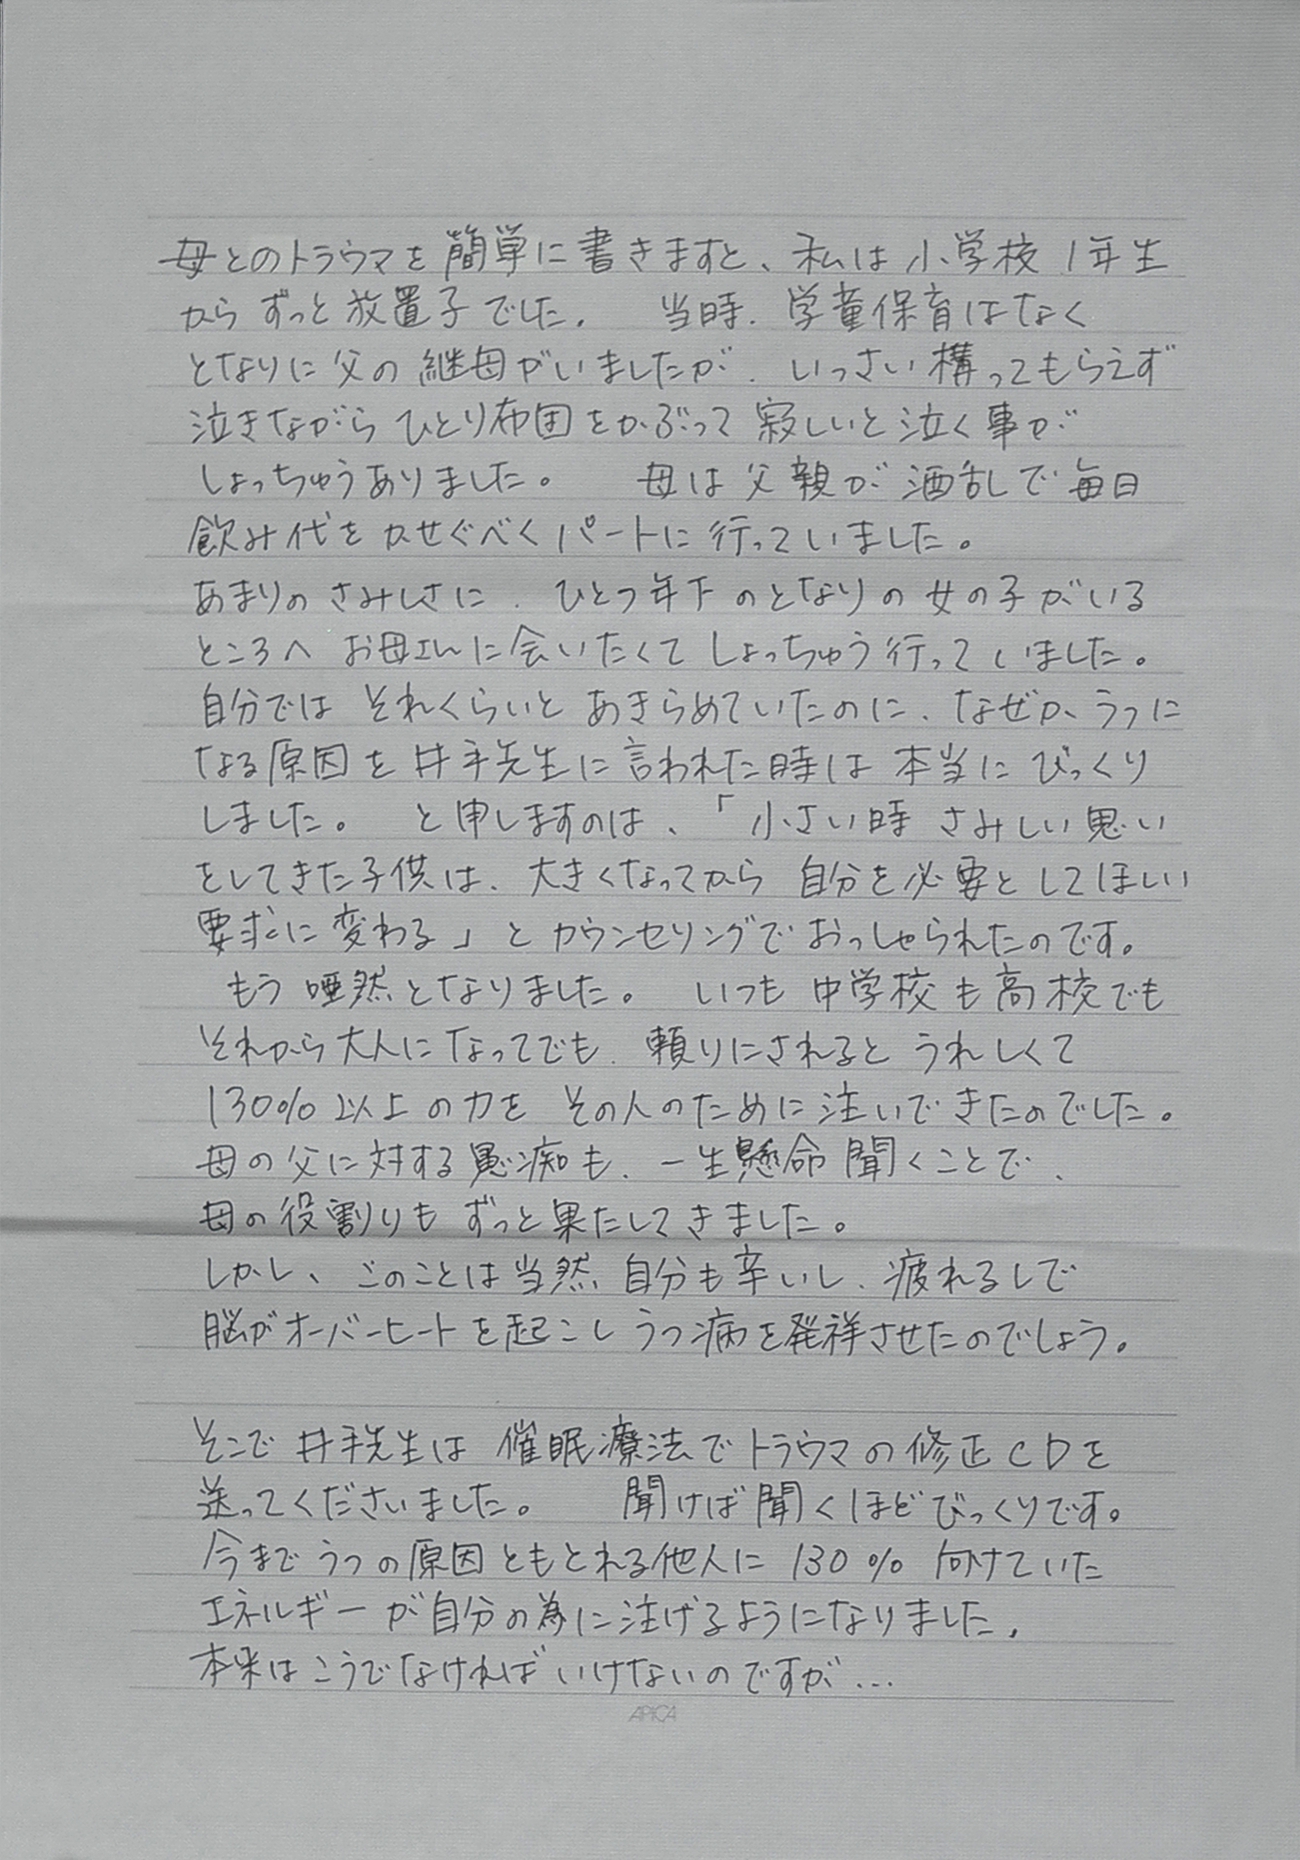 母とのトラウマを簡単に書きますと、私は小学校1年生
からずっと放置子でした。 当時、学童保育はなく
となりに父の継母がいましたが、いっさい構ってもらえず
泣きながらひとり布団をかぶって寂しいと泣く事が
しょっちゅうありました。 母は父親が酒乱で毎日
飲み代をかせぐべくパートに行っていました。
あまりのさみしさに、ひとつ年下のとなりの女の子がいる
ところへお母さんに会いたくてしょっちゅう行っていました。
自分ではそれくらいとあきらめていたのに、なぜか、うつに
なる原因を井手先生に言われた時は本当にびっくり
しました。 と申しますのは、「小さい時さみしい思い
をしてきた子供は、大きくなってから自分を必要としてほしい
要求に変わる」とカウンセリングでおっしゃられたのです。
もう唖然となりました。 いつも中学校も高校でも
それから大人になってでも、頼りにされるとうれしくて
130%以上の力をその人のために注いできたのでした。
母の父に対する愚痴も、一生懸命聞くことで、
母の役割りもずっと果たしてきました。
しかし、このことは当然、自分も辛いし、疲れるしで
脳がオーバーヒートを起こしうつ病を発祥させたのでしょう。
そこで井手先生は催眠療法でトラウマの修正CDを
送ってくださいました。 聞けば聞くほどびっくりです。
今までうつの原因ともとれる他人に130%向けていた
エネルギーが自分の為に注げるようになりました。
本来はこうでなければいけないのですが…
APICA